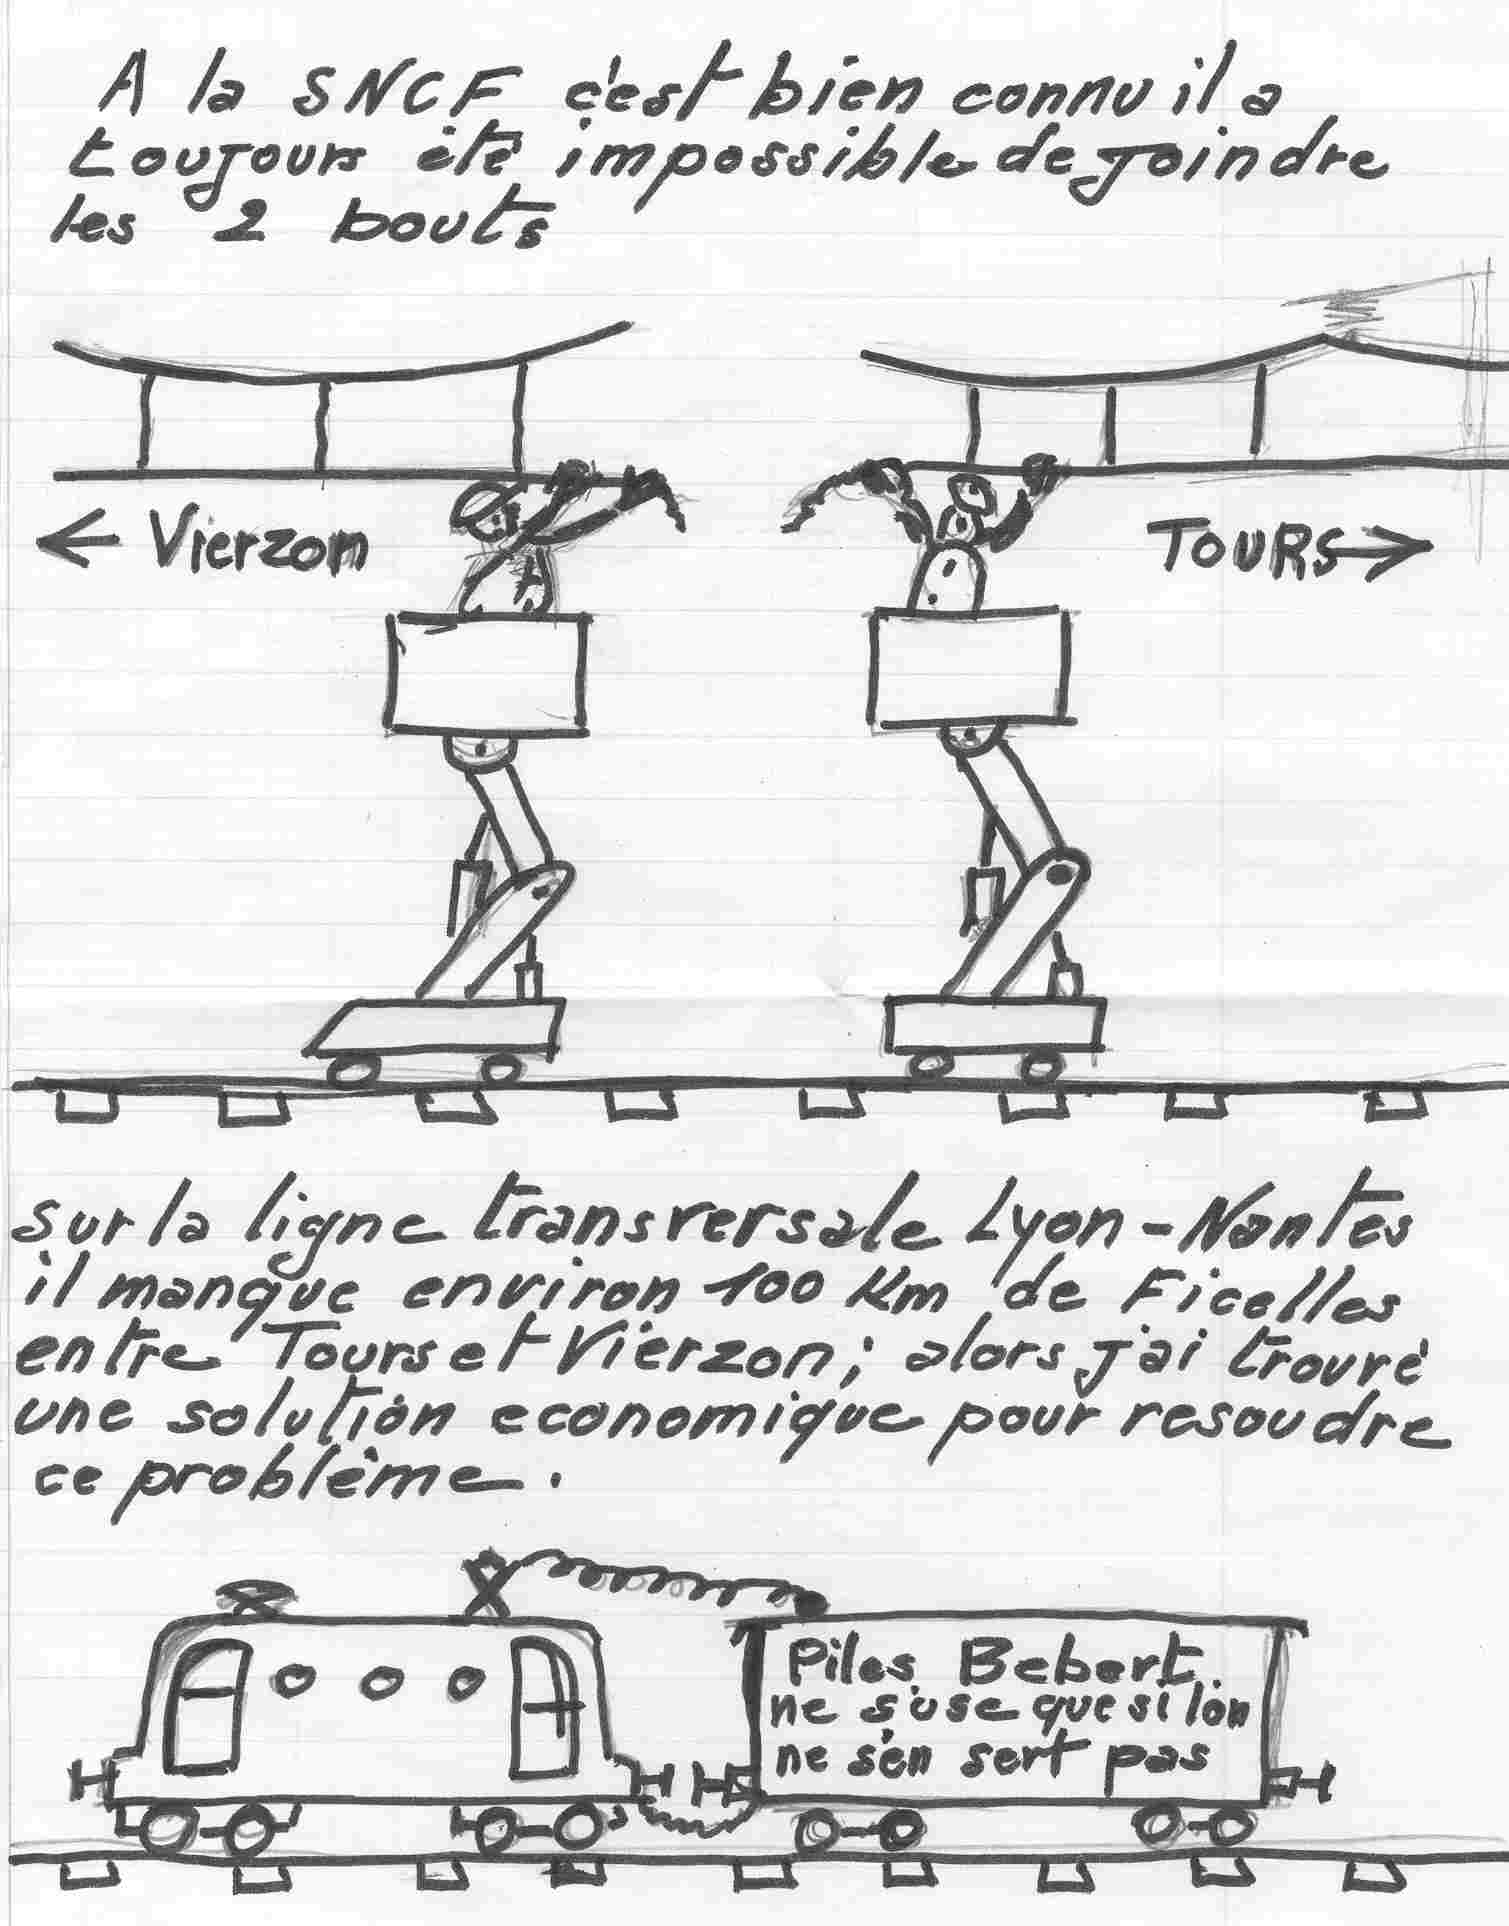 A la SNCF c'est bien connu il a
toujours été impossible de joindre
les 2 bouts
← Vierzon
TOURS →
sur la ligne transversale Lyon-Nantes
il manque environ 100 Km de Ficelles
entre Tours et Vierzon; alors j'ai trouvé
une solution economique pour resoudre
ce problème.
Piles Bebert
ne s'use que si l'on
ne s'en sert pas